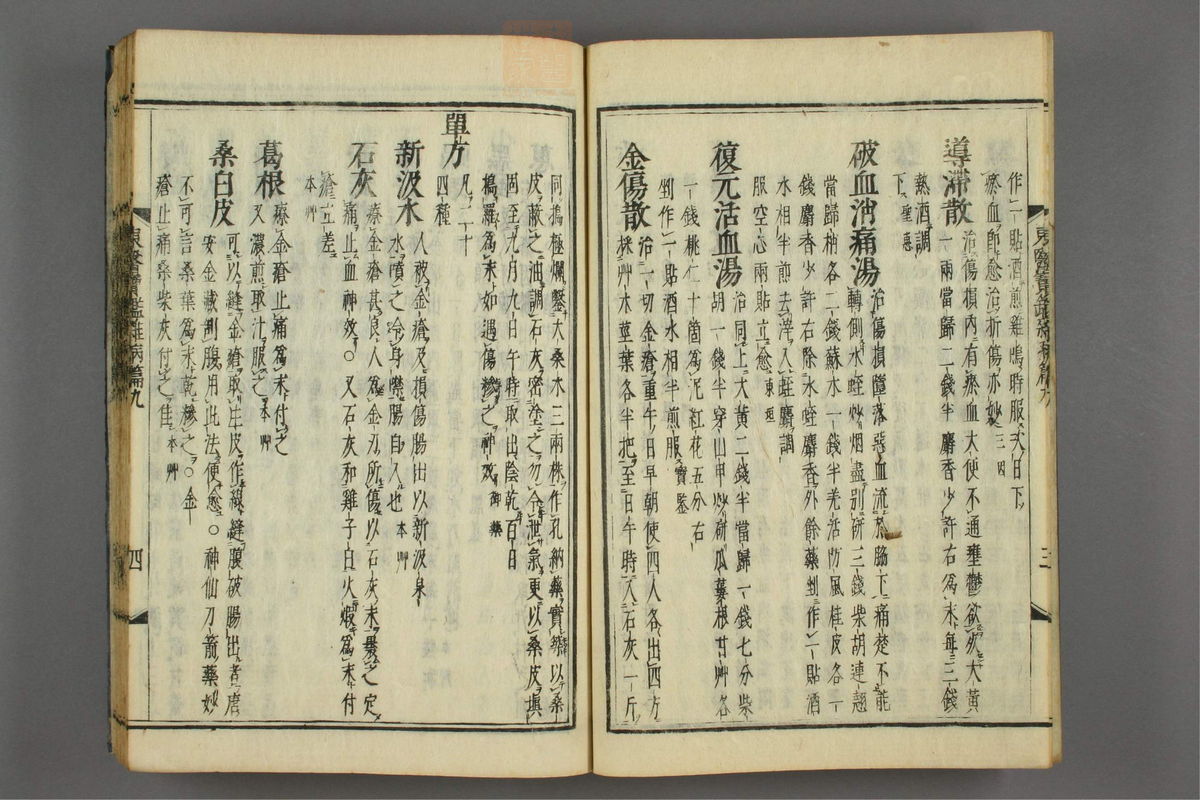 作一貼酒煎雞鳴時服天日下
瘀血即愈治折傷亦妙三因
導滯散治傷損內有瘀血大便不通壅鬱欲死大黃
一兩當歸二錢半麝香少許右爲末每三錢
熱酒調
下
破血消痛湯治傷損墮落惡血流於脇下痛楚不能
轉側水蛭炒烟盡別硏三錢柴胡連翹
當歸梢各二錢蘇木一錢半羌活防風桂皮各一
錢麝香少許右除水蛭麝香外餘藥剉作一貼酒
水相半煎去滓入蛭麝調
服空心兩貼立愈東垣
復元活血湯治同上大黃二錢半當歸一錢七分柴
胡一錢半穿山甲炒硏瓜蔞根甘艸各
一錢桃仁十箇爲泥紅花五分右
剉作一貼酒水相半煎服寶鑑
金傷散治一切金瘡重午日早朝使四人各出四方
採艸木莖葉各半把至日午時入石灰一斤
三
同搗極爛鑿大桑木三兩株作孔納藥實築以桑
皮蔽之油調石灰密塗之勿令泄氣更以桑皮塡
固至九月九日午時取出陰乾百日
搗羅爲末如遇傷糝之神效御藥
單方凡二十
四種
新汲水人被金瘡及損傷腸出以新汲泉
水噴之令身噤腸自入也本艸
石灰療金瘡甚良人爲金刃所傷以石灰末裹之定
痛止血神效○又石灰和雞子白火煆爲末付
瘡立差
本艸
葛根療金瘡止痛爲末付之
又濃煎取汁服之本艸
桑白皮可以縫金瘡取生皮作線縫腹破腸出者唐
安金藏剖腹用此法便愈○神仙刀箭藥妙
不可言桑葉爲末乾糝之○金
瘡止痛桑柴灰付之佳本艸
東醫寶鑑雜病篇九
四